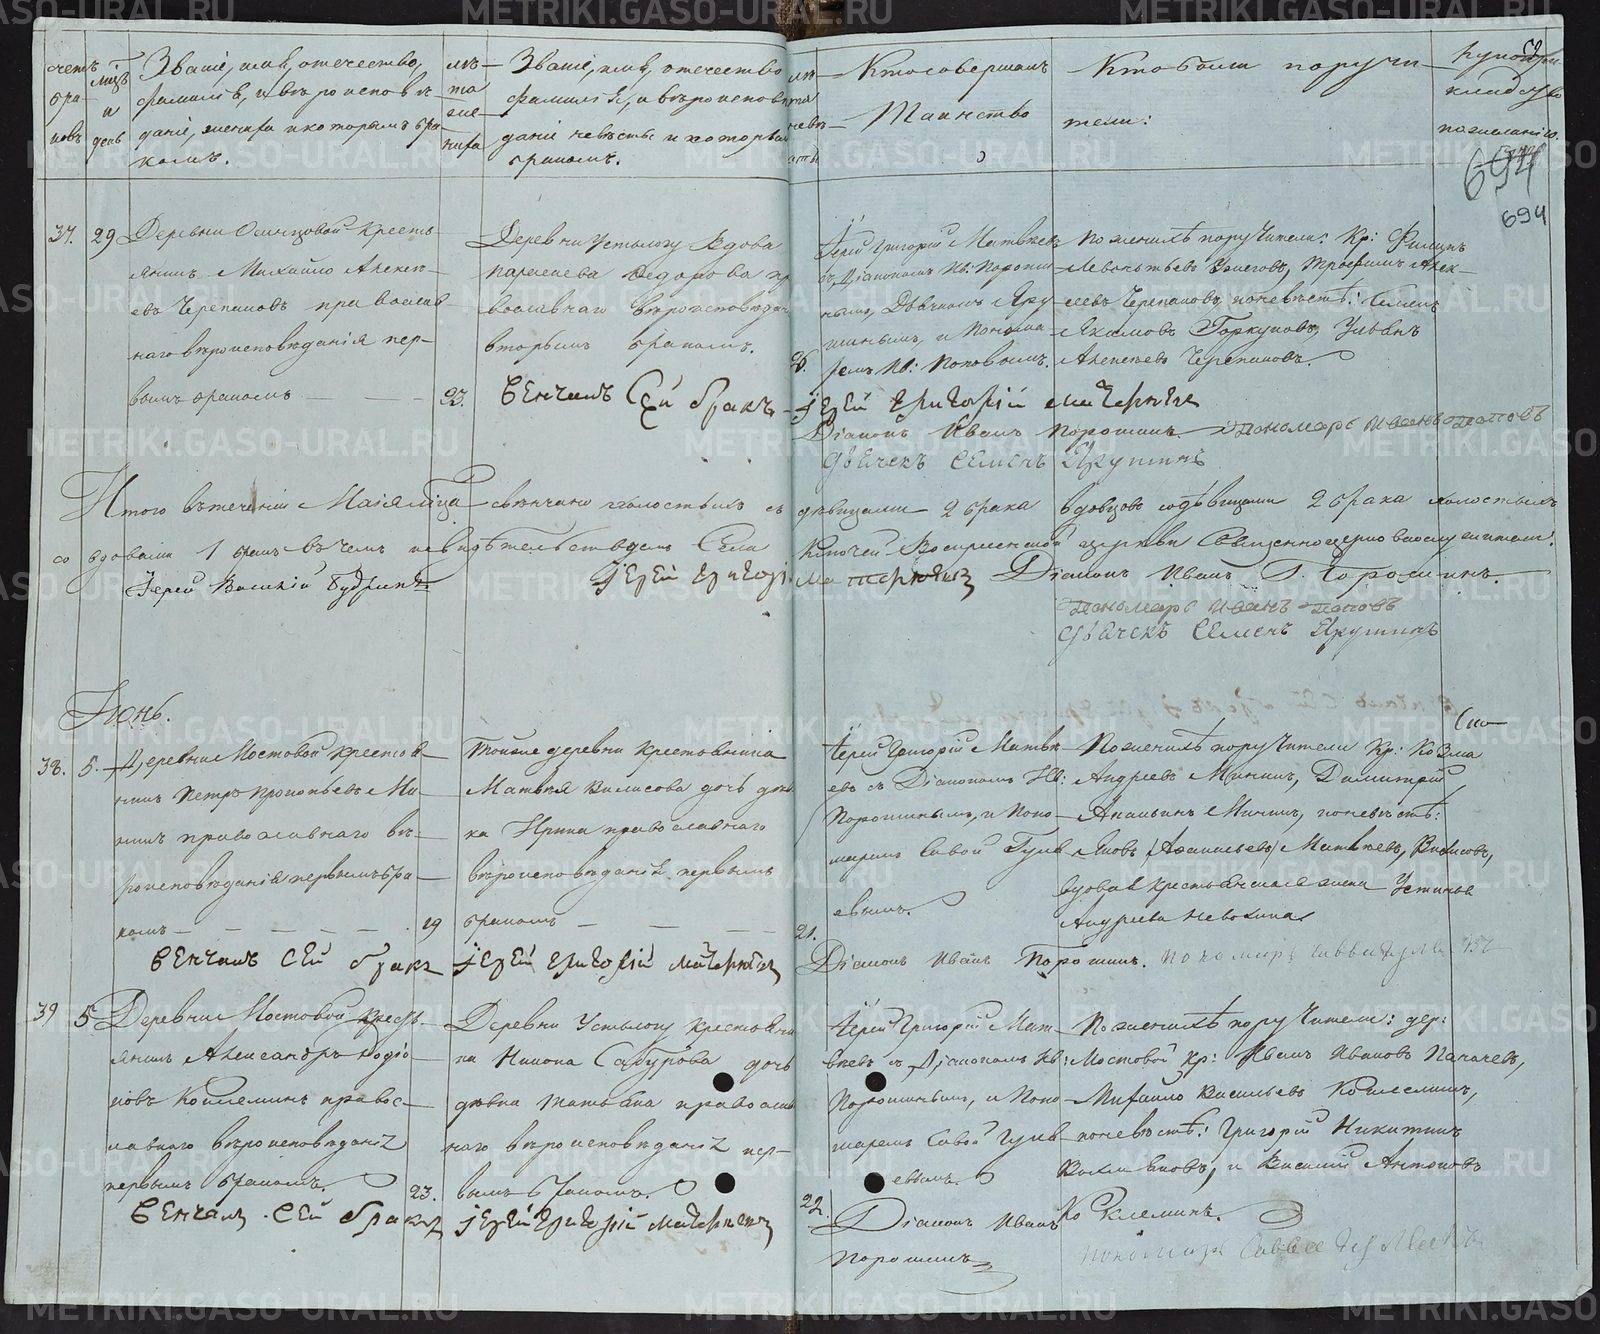 счетъ бра-ковъ
мцъ и день
Званіе, имя, отечество,
фамилія, и вѣроисповѣ-
даніе, жениха и которымъ бра-
комъ.
лѣ-
та
же-
ниха
Званіе, имя, отечество
фамилія, и вѣроиспов
даніе невѣсты и которым
бракомъ.
лѣ-
та
невѣ-
сты
Кто совершалъ
Таинство
Кто были поручи-
тели:
694
694
37. 29
Деревни Осинцовой кресть-
янинъ Михайло Алексѣ-
евъ Черепановъ православ
наго вѣроисповѣданія пер-
вымъ бракомъ
23.
Деревни Устьлогу вдова
Парасковья Федорова пр
вославнаго вѣроисповѣдан
вторымъ бракомъ.
26.
Іерей Григорій Матвѣев
съ Діакономъ Ив: Пороши-
нымъ, Дьячкомъ Яру-
шинымъ, и Понома-
ремъ Ив: Поповымъ.
По женихѣ поручители: Кр: Филипъ
Трофимъ Алек-
сѣевъ Черепановъ, по невѣстѣ: Семенъ
Якимовъ Горкуновъ, Ульянъ
Алексѣевъ Черепановъ.
Венчалъ Сей бракъ Іерей Григорій Матвѣевъ
Діаконъ Иванъ Порошинъ. Пономарь Иванъ Поповъ
Дьячекъ Семенъ Ярушинъ
Итого въ теченіи Маія мѣсяца свѣнчано холостыхъ съ дѣвицами 2 брака вдовцовъ со дѣвицами 2 брака холостыхъ
со вдовами 1 бракъ въ чемъ и свидѣтельствуемъ Села Ключей Воскресенской церкви Священноцерковнослужители:
Іерей Василій Будринъ Іерей Григорій Матвѣевъ Діаконъ Иванъ Порошинъ.
Пономарь Иванъ Поповъ
Дьячекъ Семенъ Ярушинъ
Іюнь.
38. 5.
Деревни Мостовой крестья-
нинъ Петръ Прокопьевъ Ми-
нинъ православнаго вѣ-
роисповѣданія первымъ бра-
комъ
19
Тойже деревни крестьянина
Матвѣя Вилисова дочь дѣв
ка Ирина православнаго
вѣроисповѣданія первымъ
бракомъ
21.
Іерей Григорій Матвѣ-
евъ съ Діакономъ Ив:
Порошинымъ, и Поно-
маремъ Савой Гуля-
евымъ.
По женихѣ поручители Кр: Козма
Андреевъ Мининъ, Димитрій
Ананьинъ Мининъ, по невѣстѣ:
Яковъ Матвѣевъ Вилисовъ,
вдовая крестьянская жена Устинья
Андреева
Венчалъ Сей бракъ Іерей Григорій Матвѣевъ Діаконъ Иванъ Порошинъ.
39 5
Деревни Мостовой кресть-
янинъ Александръ Родіо-
новъ Коклеминъ правос-
лавнаго вѣроисповѣданія
первымъ бракомъ.
23.
Деревни Устьлогу крестьяни
на Никона Сабурова дочь
дѣвка Татьяна православ
наго вѣроисповѣданія пер-
вымъ бракомъ.
22.
Іерей Григорій Мат-
вѣевъ съ Діакономъ Ив:
Порошинымъ, и Поно-
маремъ Савой Гуля-
евымъ.
По женихѣ поручители: дер:
Мостовой Кр: Иванъ Ивановъ
Михайло Васильевъ Коклеминъ,
по невѣстѣ: Григорій Никитинъ
и Василій Антоновъ
Коклеминъ.
Венчалъ Сей бракъ Іерей Григорій Матвѣевъ
Діаконъ Иванъ
Порошинъ
METRIKI.GASO-URAL.RU